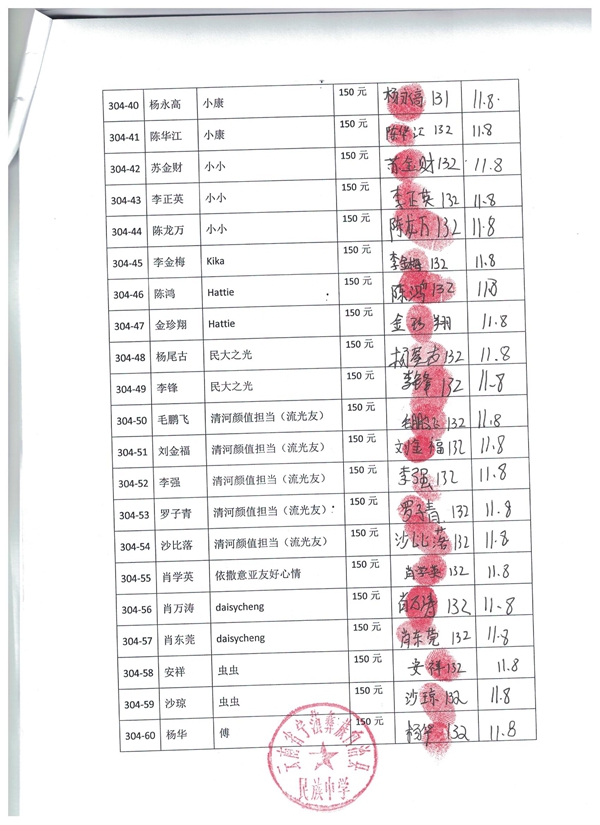 304-40 杨永高 小康 150 元 杨永高 131 11.8.
304-41 陈华江 小康 150 元 陈华江 132 11.8
304-42 苏金财 小小 150 元 苏金财 132 11.8
304-43 李正英 小小 150 元 李正英 132 11.8
304-44 陈龙万 小小 150 元 陈龙万 132 11.8
304-45 李金梅 Kika 150 元 李金梅 132 11.8
304-46 陈鸿 Hattie 150 元 陈鸿 132 11.8
304-47 金珍翔 Hattie 150 元 金珍翔 11.8
304-48 杨尾古 民大之光 150 元 杨尾古 132 11.8
304-49 李锋 民大之光 150 元 李锋 132 11.8
304-50 毛鹏飞 清河颜值担当（流光友） 150 元 毛鹏飞 132 11.8
304-51 刘金福 清河颜值担当（流光友） 150 元 刘金福 132 11.8
304-52 李强 清河颜值担当（流光友） 150 元 李强 132 11.8
304-53 罗子青 清河颜值担当（流光友） 150 元 罗子青 132 11.8
304-54 沙比落 清河颜值担当（流光友） 150 元 沙比落 132 11.8
304-55 肖学英 依撒意亚友好心情 150 元 肖学英 132 11.8
304-56 肖万涛 daisycheng 150 元 肖万涛 132 11.8
304-57 肖东莞 daisycheng 150 元 肖东莞 132 11.8
304-58 安祥 虫虫 150 元 安祥 132 11.8
304-59 沙琼 虫虫 150 元 沙琼 132 11.8
304-60 杨华 傅 150 元 杨华 132 11.8
云南省宁蒗彝族自治县
民族中学